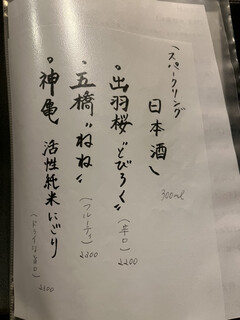 (スパークリング
日本酒)
300ml
・出羽桜"とびろく"
(辛口)
2200
・五橋"ねね"
(フルーティ)
2200
・神亀 活性純米にごり
(ドライな辛口)
2200